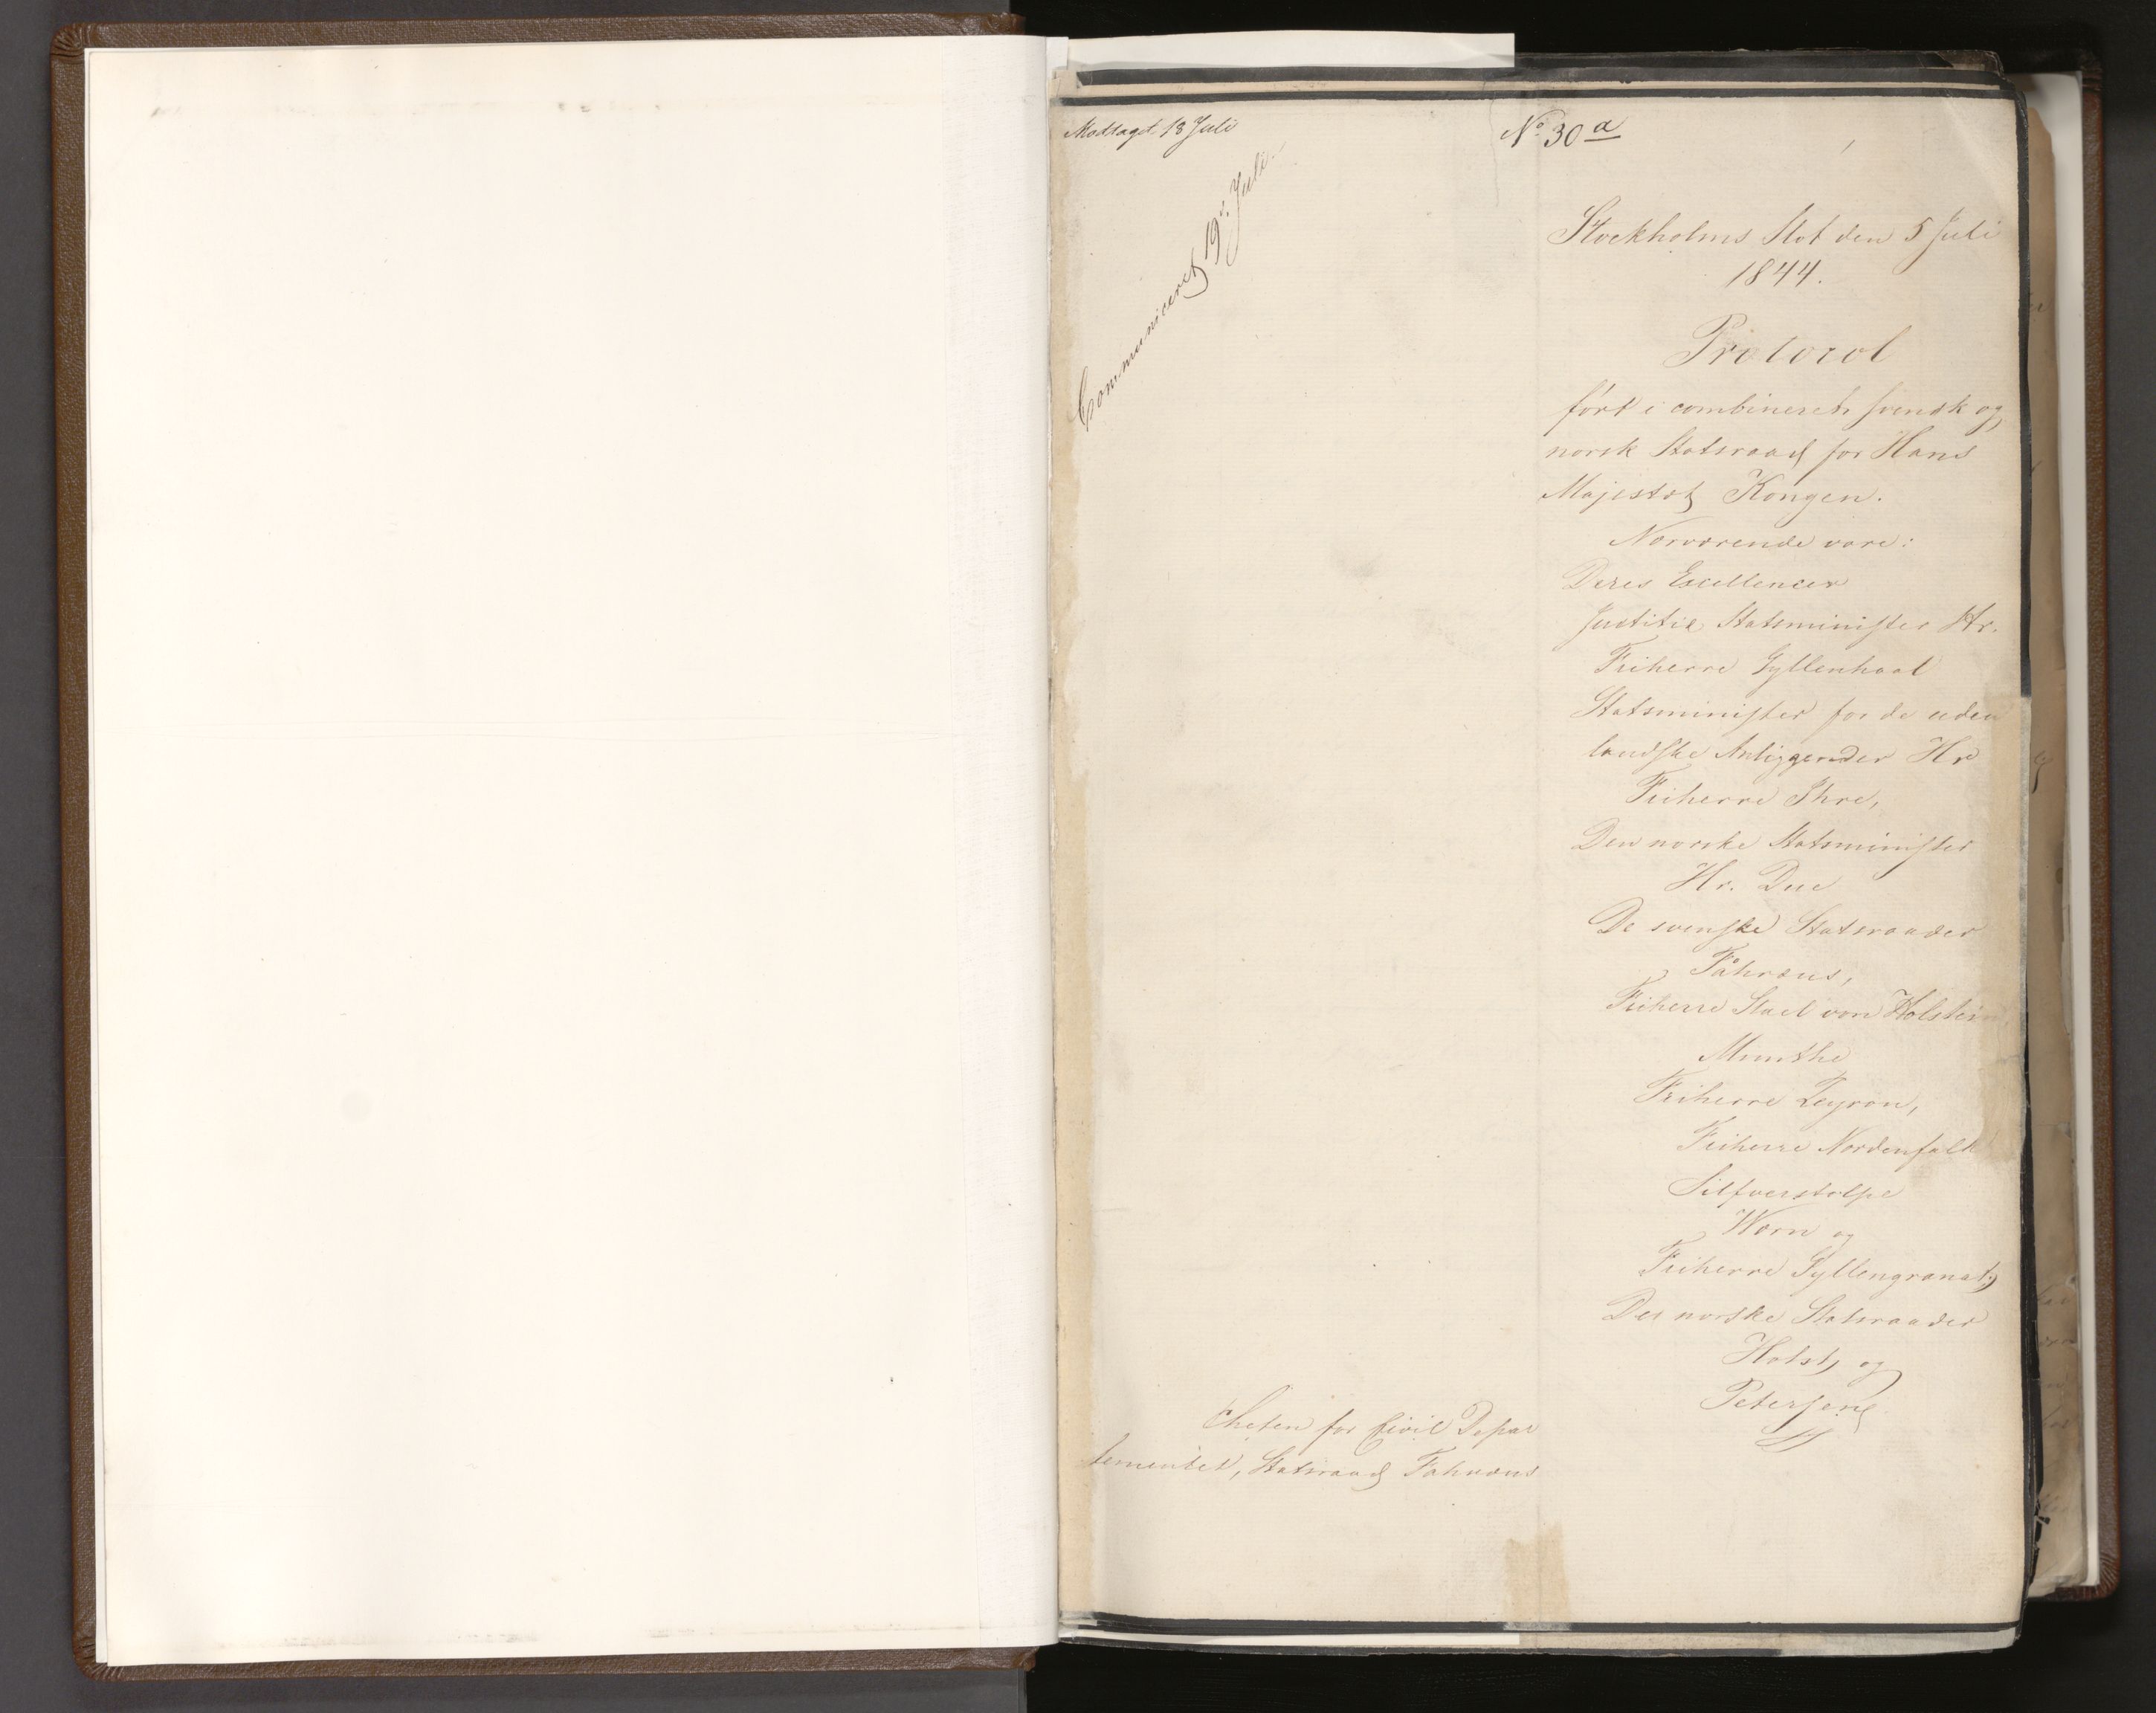 Modtaget 18 Juli
No 30 a
Communiceret 19. Juli
Stockholms Slot den 5 Juli
1844.
Protocol
ført i combineret svensk og
norsk Statsraad for Hans
Majestæt Kongen.
Nærværende vare:
Deres Excellencer
Justitie Statsminister Hr.
Friherre Gyllenhaal
Statsminister for de uden
landske Anliggender Hr
Friherre Ihre,
Den norske Statsminister
Hr. Due
De svenske Statsraader
Fåhræus,
Friherre Stael von Holstein,
Munthe
Friherre Peyron,
Friherre Nordenfalk
Silfverstolpe
Wærn og
Friherre Gyllengranat;
De norske Statsraader
Holst, og
Petersen
Chefen for Civil Depar
tementet, Statsraad Fahræus